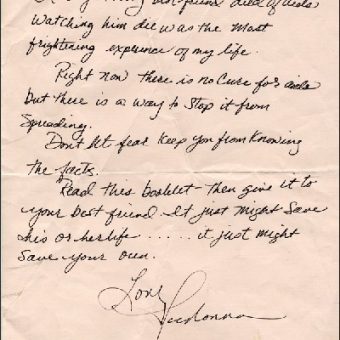 friend died of aids
Watching him die was the most
frightening experience of my life.
Right now there is no cure for aids
but there is a way to stop it from
Spreading.
Don't let fear keep you from knowing
the facts.
Read this booklet - then give it to
your best friend It just might save
his or her life ...... it just might
save your own.
Love
Madonna